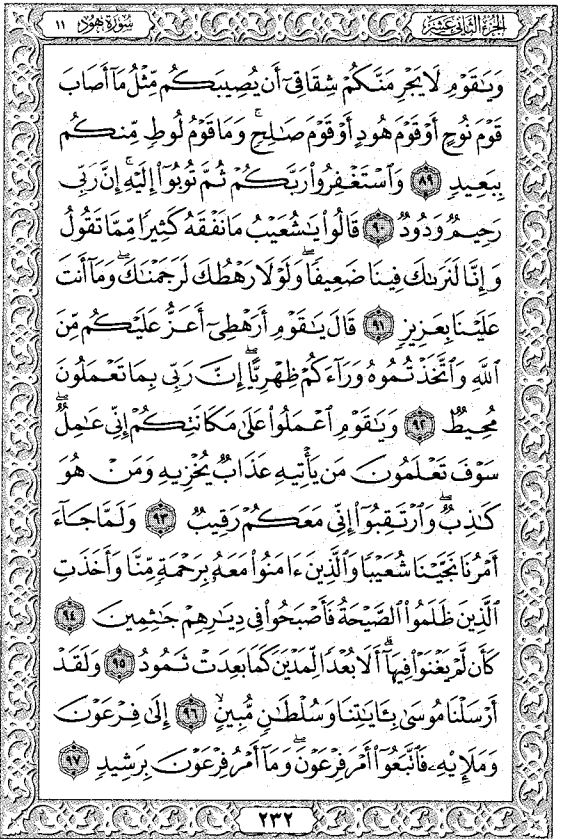 الجزء الثاني عشر
سورة هود ١١
وَيَٰقَوْمِ لَا يَجْرِمَنَّكُمْ شِقَاقِىٓ أَن يُصِيبَكُم مِّثْلُ مَآ أَصَابَ
قَوْمَ نُوحٍ أَوْ قَوْمَ هُودٍ أَوْ قَوْمَ صَٰلِحٍ ۚ وَمَا قَوْمُ لُوطٍ مِّنكُم
بِبَعِيدٍ ٨٩ وَٱسْتَغْفِرُوا۟ رَبَّكُمْ ثُمَّ تُوبُوٓا۟ إِلَيْهِ ۚ إِنَّ رَبِّى
رَحِيمٌ وَدُودٌ ٩٠ قَالُوا۟ يَٰشُعَيْبُ مَا نَفْقَهُ كَثِيرًا مِّمَّا تَقُولُ
وَإِنَّا لَنَرَىٰكَ فِينَا ضَعِيفًا ۖ وَلَوْلَا رَهْطُكَ لَرَجَمْنَٰكَ ۖ وَمَآ أَنتَ
عَلَيْنَا بِعَزِيزٍ ٩١ قَالَ يَٰقَوْمِ أَرَهْطِىٓ أَعَزُّ عَلَيْكُم مِّنَ
ٱللَّهِ وَٱتَّخَذْتُمُوهُ وَرَآءَكُمْ ظِهْرِيًّا ۖ إِنَّ رَبِّى بِمَا تَعْمَلُونَ
مُحِيطٌ ٩٢ وَيَٰقَوْمِ ٱعْمَلُوا۟ عَلَىٰ مَكَانَتِكُمْ إِنِّى عَٰمِلٌ ۖ
سَوْفَ تَعْلَمُونَ مَن يَأْتِيهِ عَذَابٌ يُخْزِيهِ وَمَنْ هُوَ
كَٰذِبٌ ۖ وَٱرْتَقِبُوٓا۟ إِنِّى مَعَكُمْ رَقِيبٌ ٩٣ وَلَمَّا جَآءَ
أَمْرُنَا نَجَّيْنَا شُعَيْبًا وَٱلَّذِينَ ءَامَنُوا۟ مَعَهُۥ بِرَحْمَةٍ مِّنَّا وَأَخَذَتِ
ٱلَّذِينَ ظَلَمُوا۟ ٱلصَّيْحَةُ فَأَصْبَحُوا۟ فِى دِيَٰرِهِمْ جَٰثِمِينَ ٩٤
كَأَن لَّمْ يَغْنَوْا۟ فِيهَآ ۗ أَلَا بُعْدًا لِّمَدْيَنَ كَمَا بَعِدَتْ ثَمُودُ ٩٥ وَلَقَدْ
أَرْسَلْنَا مُوسَىٰ بِـَٔايَٰتِنَا وَسُلْطَٰنٍ مُّبِينٍ ٩٦ إِلَىٰ فِرْعَوْنَ
وَمَلَإِي۟هِۦ فَٱتَّبَعُوٓا۟ أَمْرَ فِرْعَوْنَ ۖ وَمَآ أَمْرُ فِرْعَوْنَ بِرَشِيدٍ ٩٧
٢٣٢